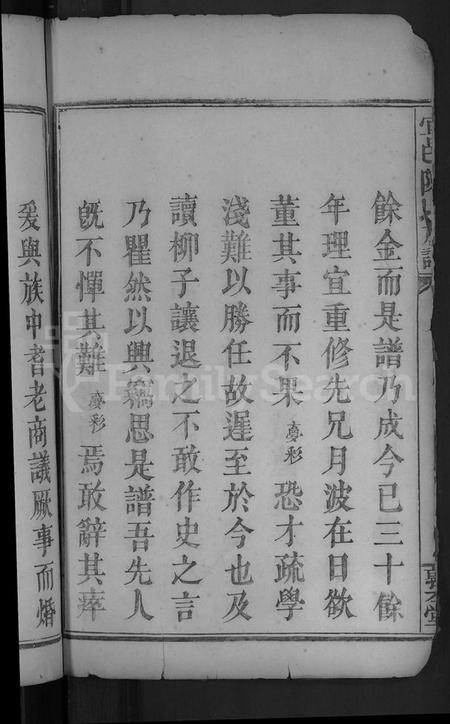 餘金而是譜乃成今已三十餘
年理宜重修先兄月波在日欲
董其事而不果賡彩恐才疏學
淺難以勝任故遲至於今也及
讀柳子讓退之不敢作史之言
乃瞿然以興竊思是譜吾先人
旣不憚其難賡彩焉敢辭其瘁
爰與族中耆老商議厥事而婚
FamilySearch